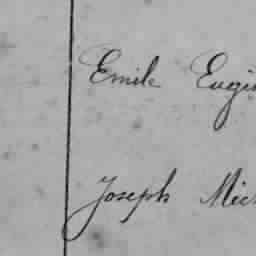 Emile Eugè
Joseph Mic